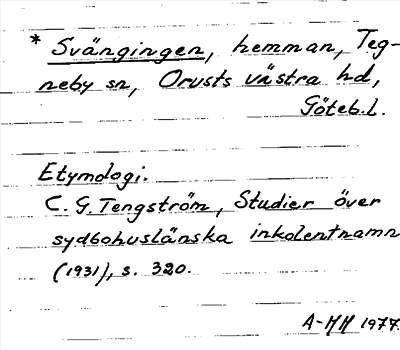 * Svängingen, hemman, Teg-
neby sn, Orusts västra hd,
Göteb.l.
Etymologi.
C. G. Tengström, Studier över
sydbohuslänska inkolentnamn
(1931), s. 320.
A-HH 1977